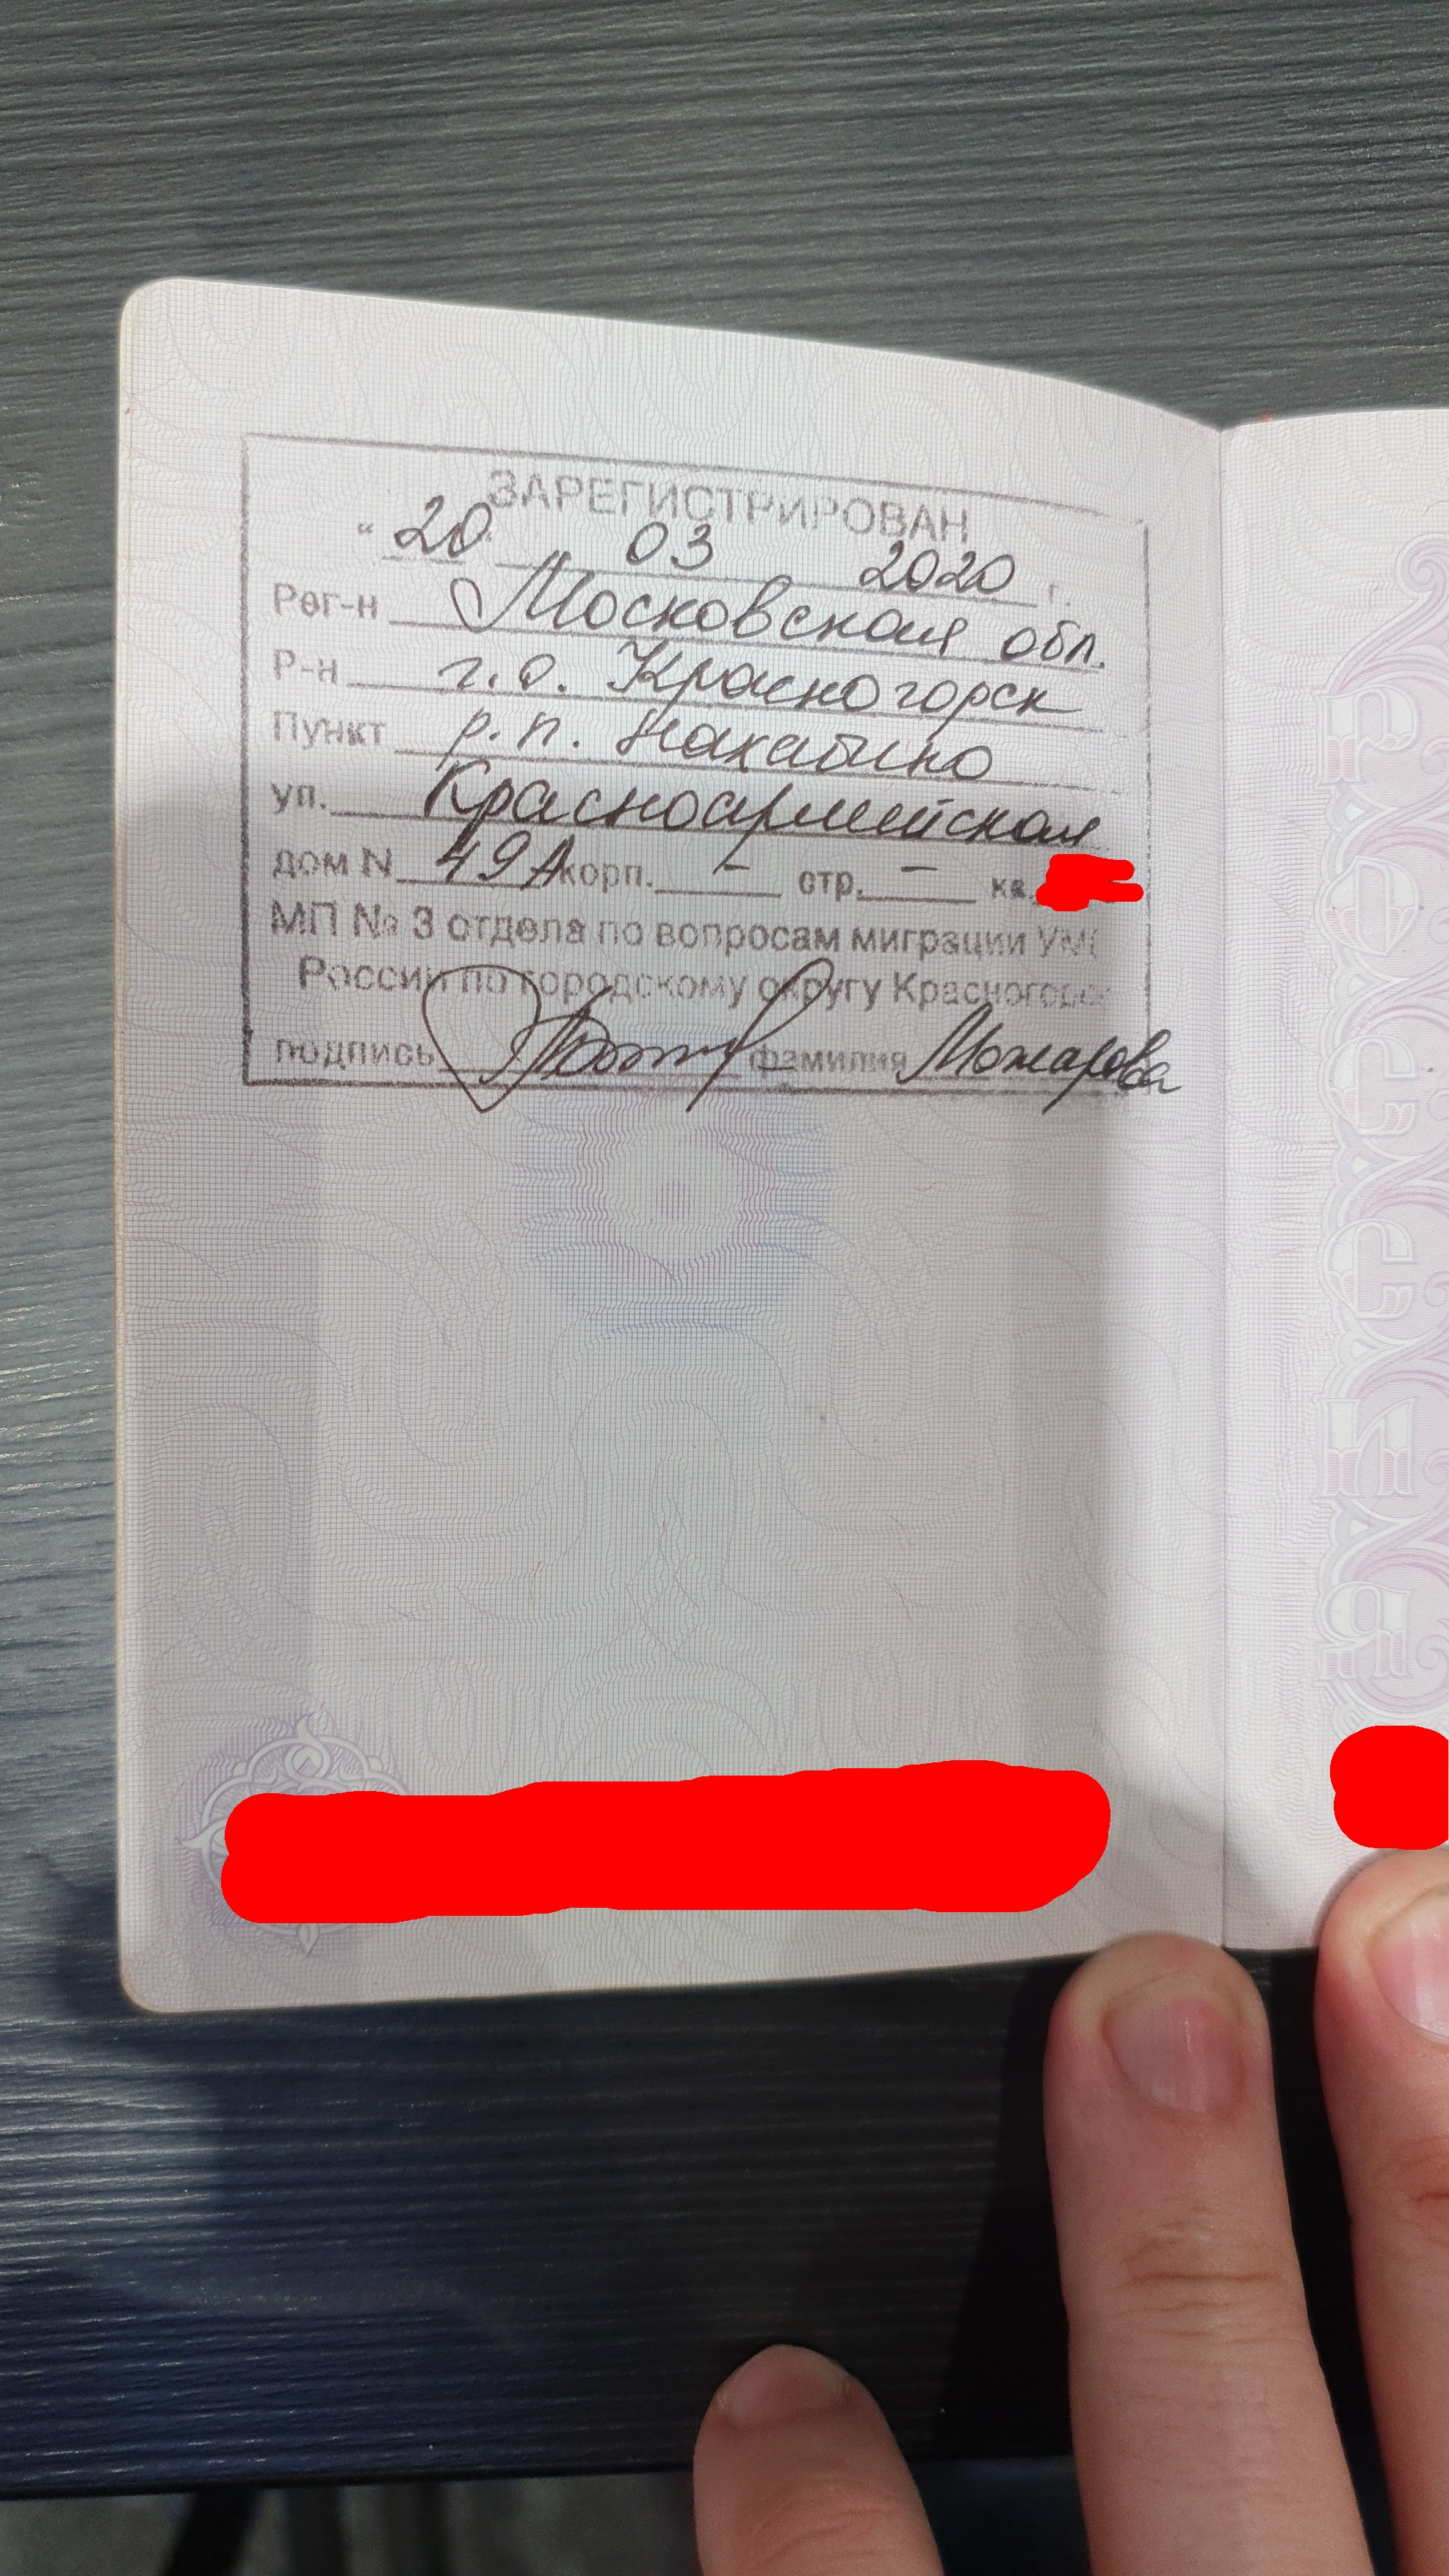 ЗАРЕГИСТРИРОВАН
" 20 03 2020 г.
Рег-н Московская обл.
Р-н г.о. Красногорск
Пункт р.п. Нахабино
ул. Красноармейская
дом N 49А корп. - стр. - кв.
МП № 3 отдела по вопросам миграции УМ
России по городскому округу Красногорс
подпись фамилия Можарова